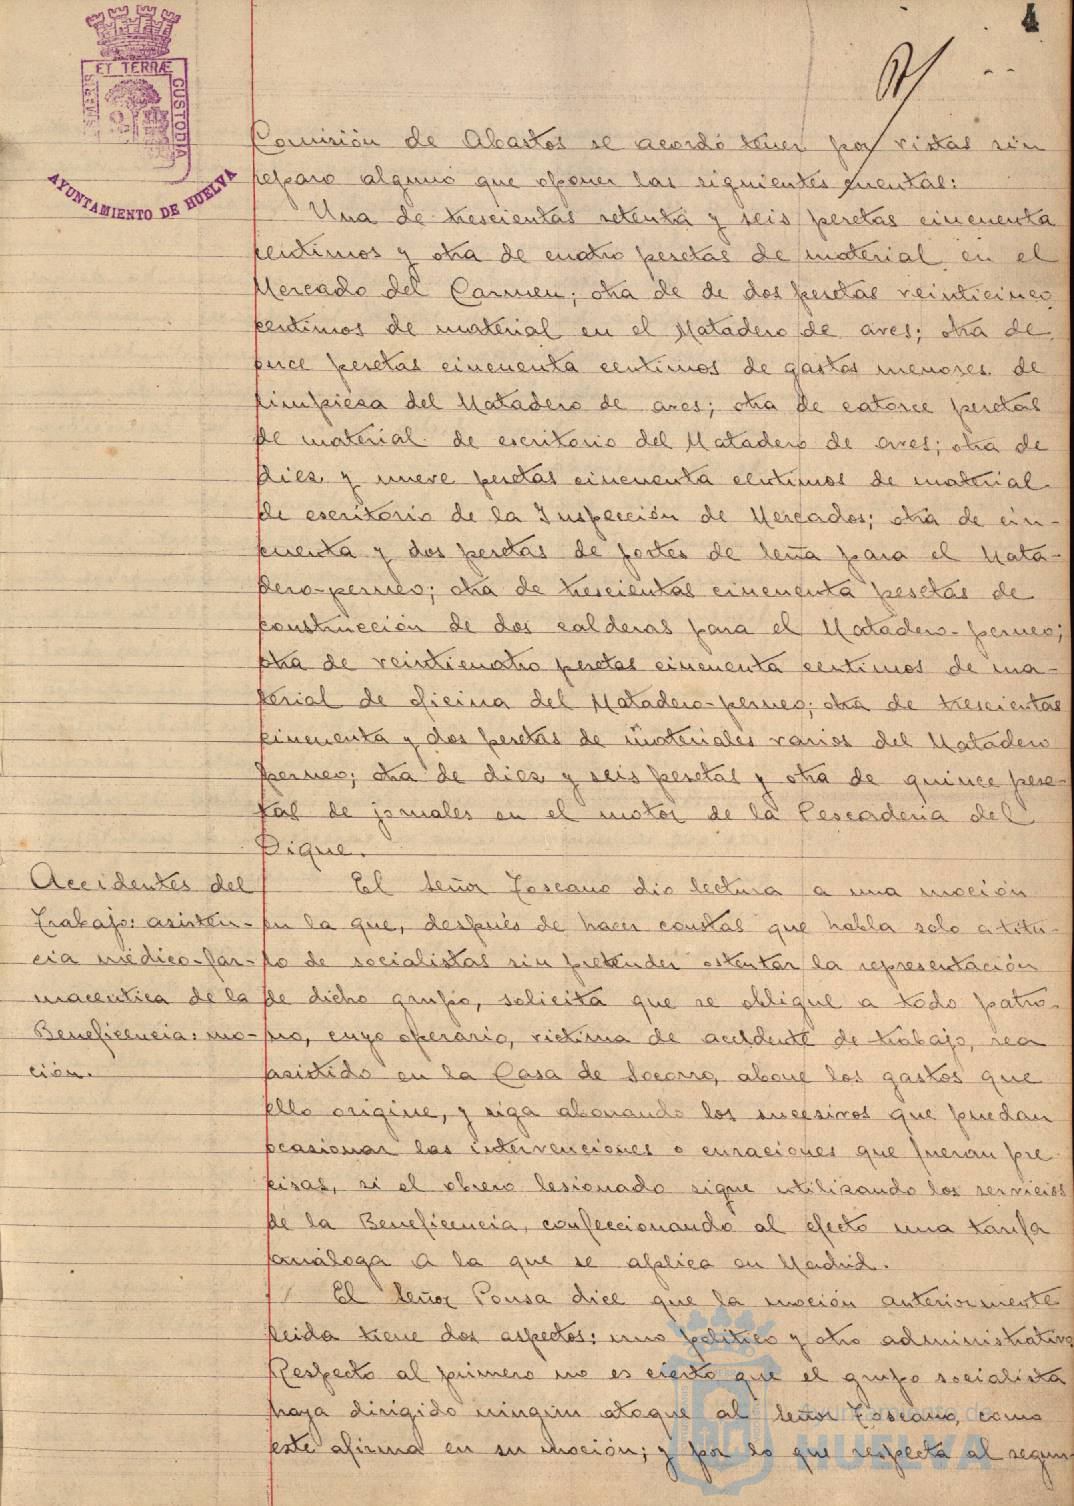 4
ET TERRÆ
CUSTODIA
AYUNTAMIENTO DE HUELVA
Comisión de Abastos se acordó tener por vistas sin
reparo alguno que oponer las siguientes cuentas:
Una de trescientas setenta y seis pesetas cincuenta
centimos y otra de cuatro pesetas de material en el
Mercado del Carmen; otra de de dos pesetas veinticinco
centimos de material en el Matadero de aves; otra de
once pesetas cincuenta centimos de gastos menores de
limpieza del Matadero de aves; otra de catorce pesetas
de material de escritorio del Matadero de aves; otra de
diez y nueve pesetas cincuenta centimos de material
de escritorio de la Inspección de Mercados; otra de cin-
cuenta y dos pesetas de portes de leña para el Mata-
dero-perneo; otra de trescientas cincuenta pesetas de
construcción de dos calderas para el Matadero-perneo;
otra de veinticuatro pesetas cincuenta centimos de ma-
terial de oficina del Matadero-perneo; otra de trescientas
cincuenta y dos pesetas de materiales varios del Matadero
perneo; otra de diez y seis pesetas y otra de quince pese-
tas de jornales en el motor de la Pescaderia del
Dique.
Accidentes del
Trabajo: asisten-
cia médico-far-
maceutica de la
Beneficencia: mo-
ción.
El Señor Toscano dio lectura a una moción
en la que, después de hacer constar que habla solo a titu-
lo de socialistas sin pretender ostentar la representación
de dicho grupo, solicita que se obligue a todo patro-
no, cuyo operario, victima de accidente de trabajo, sea
asistido en la Casa de Socorro, abone los gastos que
ello origine, y siga abonando los sucesivos que puedan
ocasionar las intervenciones o curaciones que fueran pre
cisas, si el obrero lesionado sigue utilizando los servicios
de la Beneficencia, confeccionando al efecto una tarifa
análoga a la que se aplica en Madrid.
El Señor Ponsa dice que la moción anteriormente
leida tiene dos aspectos: uno politico y otro administrativo
Respecto al primero no es cierto que el grupo socialista
haya dirigido ningún ataque al Señor Toscano, como
este afirma en su moción; y por lo que respecta al segun-
Ayuntamiento de
HUELVA